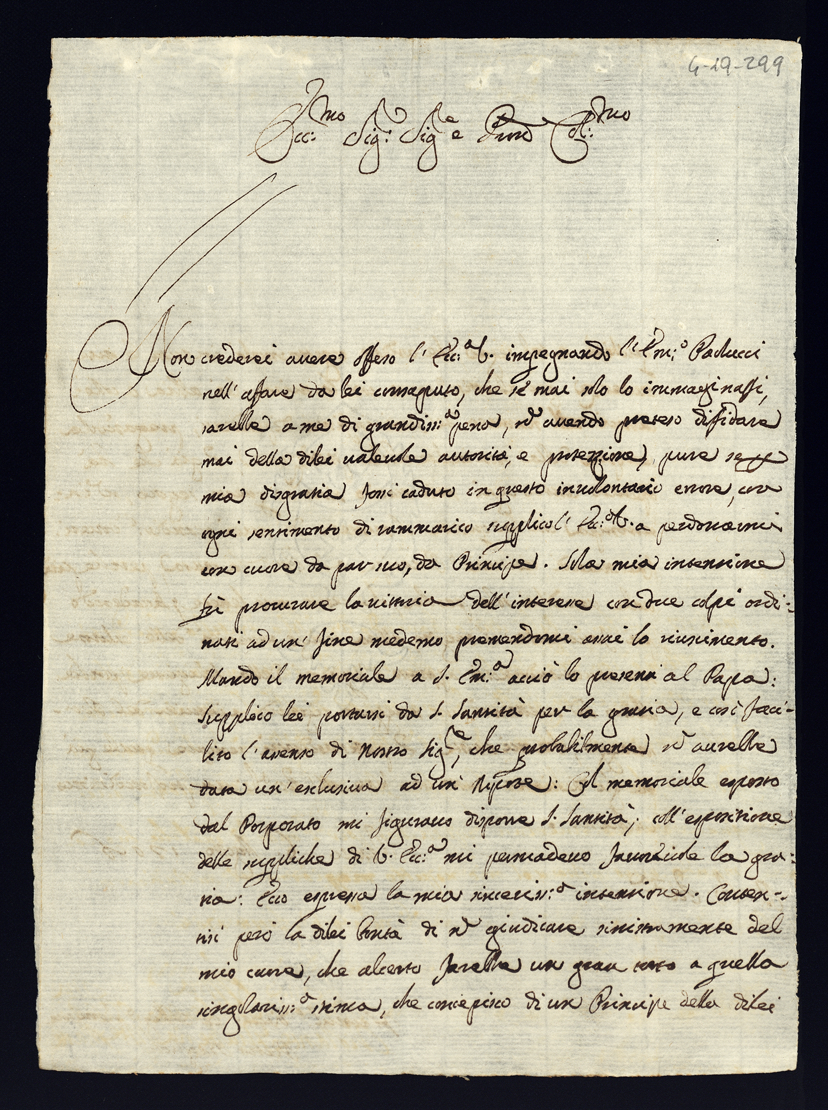 4-19-299
Ecc:mo Sig:r Sig.re e Pron Col:mo
Non crederei avere offeso l'Ecc:a V. impegnando l'Em:o Paolucci
nell'affare da lei consaputo, che se mai solo lo immaginassi,
sarebbe a me di grandiss:a pena, nè avendo preteso diffidare
mai della dilei valevole autorità, e protezione, pure se per
mia disgratia fossi caduto in questo involontario errore, con
ogni sentimento di rammarico supplico l'Ecc:a V. a perdonarmi
con cuore da par suo, da Principe. Sola mia intenzione
fù procurare la vittoria dell'interesse con due colpi ordi-
nati ad un' fine medemo premendomi assai lo riuscimento.
Mando il memoriale a S. Em:a acciò lo presenti al Papa:
supplico lei portarsi da S. Santità per la gratia, e così faci-
lito l'assenso di Nostro Sig.re, che probabilmente nè avrebbe
data un' esclusiva ad un' Nipote: Col memoriale esposto
dal Porporato mi figuravo disporre S. Santità; coll'espositione
delle suppliche di V. Ecc:a mi persadevo favorevole la gra-
tia: Ecco espressa la mia sinceriss:a intenzione. Consen-
tisi però la dilei bontà di nè giudicare sinistramente del
mio cuore, che alcerto farebbe un gran torto a quella
singolariss:a stima, che concepisco di un Principe della dilei